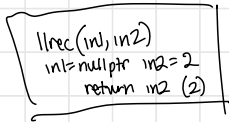 llrec(in1, in2)
in1=nullptr in2=2
return in2 (2)